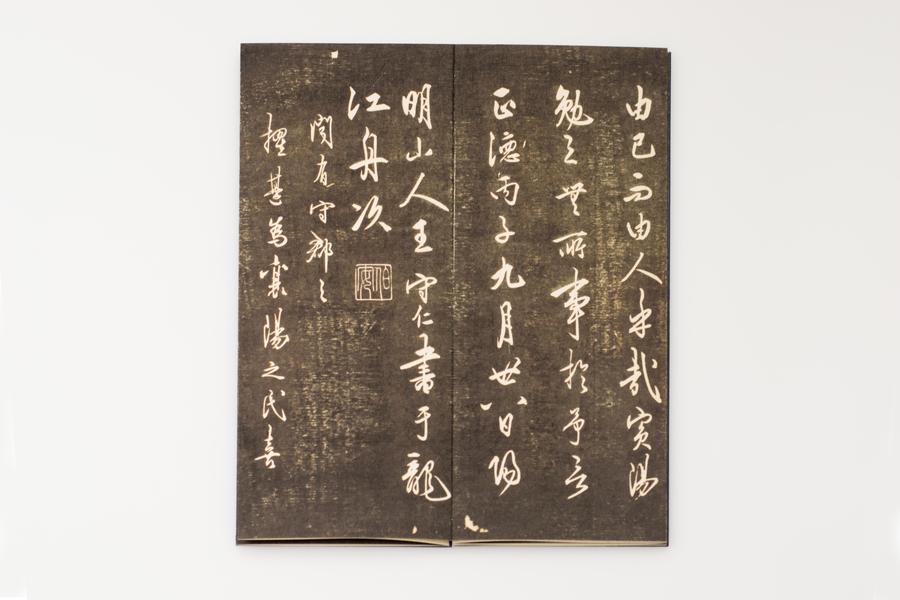 由己而由人乎哉賓陽
勉之無所事於予言
正德丙子九月廿八日陽
明山人王守仁書于龍
江舟次
伯安
聞有守郡之
擢甚為襄陽之民喜